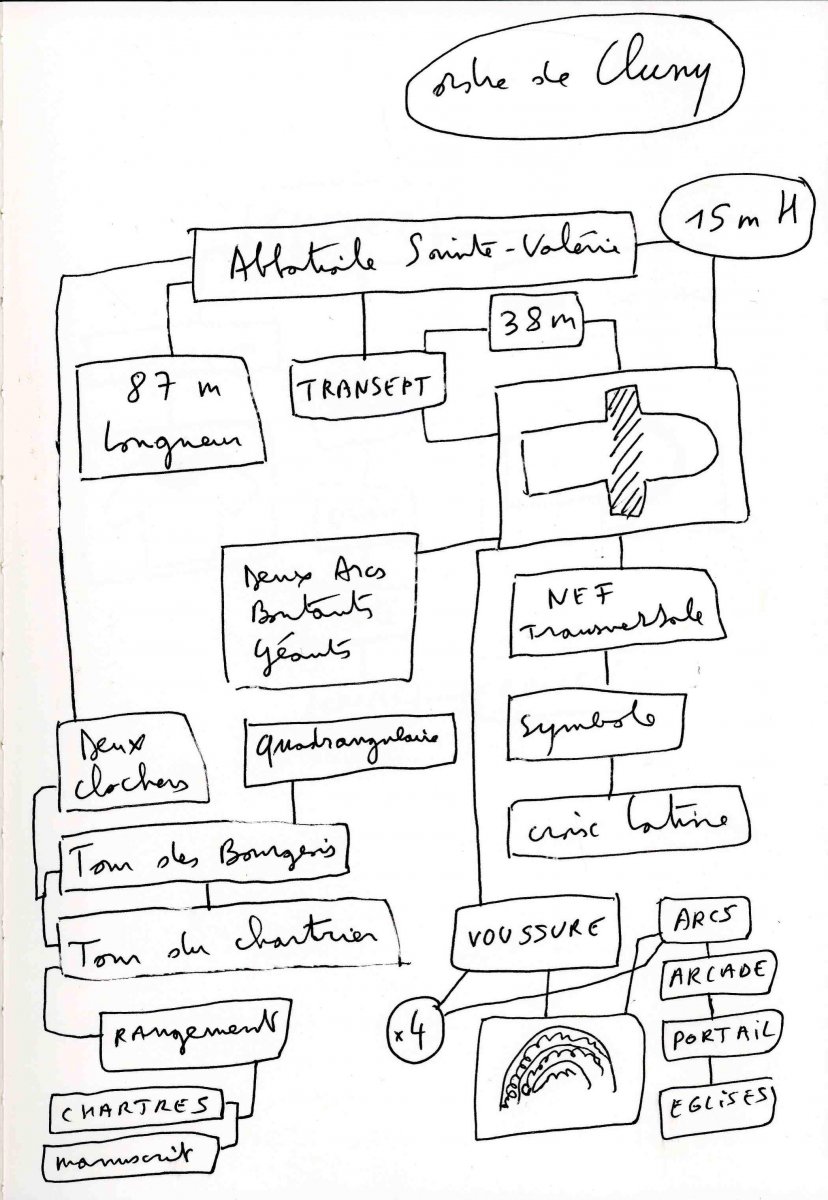 ordre de Cluny
15 m H
Abbatiale Sainte-Valérie
38 m
87 m
Longueur
TRANSEPT
Deux Arcs
Boutants
Géants
NEF
Transversale
Symbole
croix latine
Deux
clochers
Quadrangulaire
Tour des Bourgeois
Tour du chartrier
Rangement
CHARTRES
manuscrit
VOUSSURE
x4
ARCS
ARCADE
PORTAIL
EGLISES